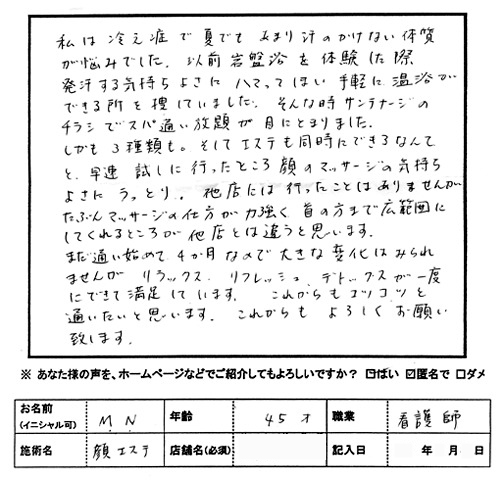 私は冷え症で夏でもあまり汗のかけない体質
が悩みでした。以前岩盤浴を体験した際
発汗する気持ちよさにハマってはい手軽に温浴が
できる所を捜していました。そんな時サンテナージの
チラシでスパ通い放題が目にとまりました。
しかも3種類も。そしてエステも同時にできるなんて
と、早速試しに行ったところ顔のマッサージの気持ち
よさにうっとり。他店には行ったことはありませんが
たぶんマッサージの仕方が力強く首の方まで広範囲に
してくれるところが他店とは違うと思います。
まだ通い始めて4か月なので大きな変化はみられ
ませんが リラックス、リフレッシュ、デトックスが一度
にできて満足しています。これからもコツコツと
通いたいと思います。これからも よろしくお願い
致します。
※ あなた様の声を、ホームページなどでご紹介してもよろしいですか？ ☑はい ☑匿名で □ダメ
お名前 (イニシャル可) MN 年齢 45才 職業 看護師
施術名 顔エステ 店舗名(必須) 記入日 年 月 日